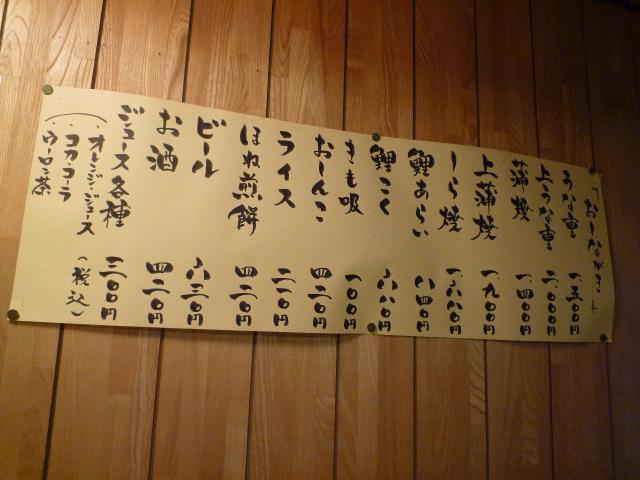 「おしながき」
うな重 一、五〇〇円
上うな重 二、〇〇〇円
蒲焼 一、四〇〇円
上蒲焼 一、九〇〇円
しら焼 一、八〇円
鯉あらい 八四〇円
鯉こく 六八〇円
きも吸 一〇〇円
おしんこ 四二〇円
ライス 二一〇円
ほね煎餅 四二〇円
ビール 六三〇円
お酒 四二〇円
ジュース各種 三〇〇円
(・オレンジジュース
・コカコーラ
・ウーロン茶
(税込)